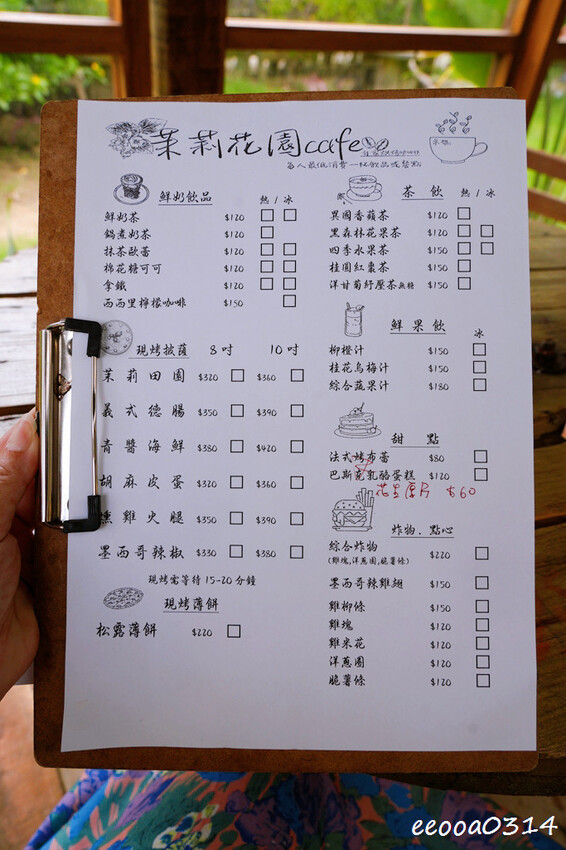 茉莉花園cafe
每人最低消費一杯飲品或餐點
鮮奶飲品 熱/冰
鮮奶茶 $120
鍋煮奶茶 $120
抹茶歐蕾 $120
棉花糖可可 $120
拿鐵 $120
西西里檸檬咖啡 $150
現烤披薩 8吋 10吋
茉莉田園 $320 $360
義式德腸 $350 $390
青醬海鮮 $380 $420
胡麻皮蛋 $320 $360
燻雞火腿 $350 $390
墨西哥辣椒 $330 $380
現烤需等待 15-20分鐘
現烤薄餅
松露薄餅 $220
茶飲 熱/冰
異國香蘋茶 $120
黑森林花果茶 $120
四季水果茶 $150
桂圓紅棗茶 $150
洋甘菊紓壓茶無糖 $150
鮮果飲 冰
柳橙汁 $150
桂花烏梅汁 $150
綜合蔬果汁 $180
甜點
法式烤布蕾 $80
巴斯克乳酪蛋糕 $120
花生厚片 $60
炸物.點心
綜合炸物 $220
(雞塊,洋蔥圈,脆薯條)
墨西哥辣雞翅 $150
雞柳條 $150
雞塊 $120
雞米花 $120
洋蔥圈 $120
脆薯條 $120
eeooa0314